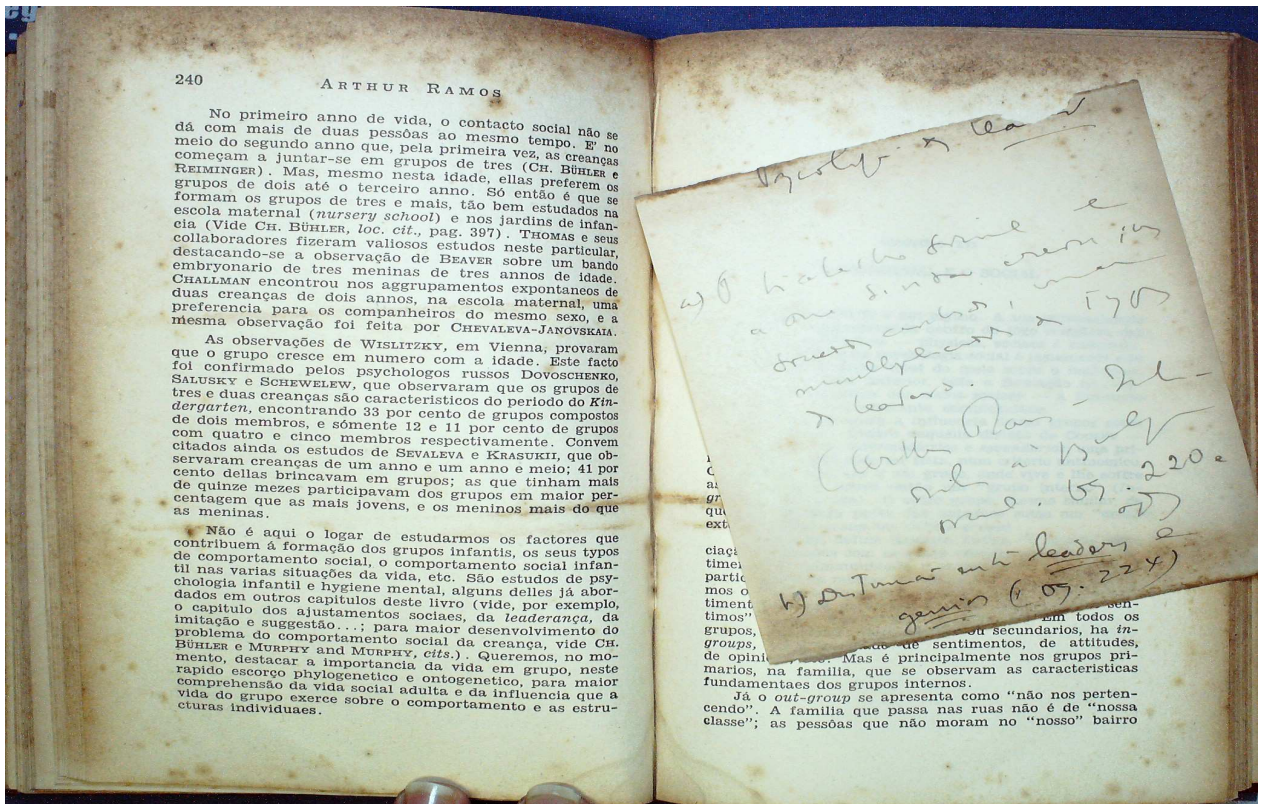 240
ARTHUR RAMOS
No primeiro anno de vida, o contacto social não se
dá com mais de duas pessôas ao mesmo tempo. E' no
meio do segundo anno que, pela primeira vez, as creanças
começam a juntar-se em grupos de tres (CH. BÜHLER e
REIMINGER). Mas, mesmo nesta idade, ellas preferem os
grupos de dois até o terceiro anno. Só então é que se
formam os grupos de tres e mais, tão bem estudados na
escola maternal (nursery school) e nos jardins de infan-
cia (Vide CH. BÜHLER, loc. cit., pag. 397). THOMAS e seus
collaboradores fizeram valiosos estudos neste particular,
destacando-se a observação de BEAVER sobre um bando
embryonario de tres meninas de tres annos de idade.
CHALLMAN encontrou nos aggrupamentos expontaneos de
duas creanças de dois annos, na escola maternal, uma
preferencia para os companheiros do mesmo sexo, e a
mesma observação foi feita por CHEVALEVA-JANOVSKAIA.
As observações de WISLITZKY, em Vienna, provaram
que o grupo cresce em numero com a idade. Este facto
foi confirmado pelos psychologos russos DOVOSCHENKO,
SALUSKY e SCHEWELEW, que observaram que os grupos de
tres e duas creanças são caracteristicos do periodo do Kin-
dergarten, encontrando 33 por cento de grupos compostos
de dois membros, e sómente 12 e 11 por cento de grupos
com quatro e cinco membros respectivamente. Convem
citados ainda os estudos de SEVALEVA e KRASUKII, que ob-
servaram creanças de um anno e um anno e meio; 41 por
cento dellas brincavam em grupos; as que tinham mais
de quinze mezes participavam dos grupos em maior per-
centagem que as mais jovens, e os meninos mais do que
as meninas.
Não é aqui o logar de estudarmos os factores que
contribuem á formação dos grupos infantis, os seus typos
de comportamento social, o comportamento social infan-
til nas varias situações da vida, etc. São estudos de psy-
chologia infantil e hygiene mental, alguns delles já abor-
dados em outros capitulos deste livro (vide, por exemplo,
o capitulo dos ajustamentos sociaes, da leaderança, da
imitação e suggestão...; para maior desenvolvimento do
problema do comportamento social da creança, vide CH.
BÜHLER e MURPHY and MURPHY, cits.). Queremos, no mo-
mento, destacar a importancia da vida em grupo, neste
rapido escorço phylogenetico e ontogenetico, para maior
comprehensão da vida social adulta e da influencia que a
vida do grupo exerce sobre o comportamento e as estru-
cturas individuaes.
a) O
typos
leaders.
220 e
b) leaders e
genios (pg. 224)
gr
qu
ext
ciaçã
timen
partic
mos o
timent
timos" sen-
grupos, Em todos os
ou secundarios, ha in-
groups, de sentimentos, de attitudes,
de opini Mas é principalmente nos grupos pri-
marios, na familia, que se observam as caracteristicas
fundamentaes dos grupos internos.
Já o out-group se apresenta como "não nos perten-
cendo". A familia que passa nas ruas não é de "nossa
classe"; as pessôas que não moram no "nosso" bairro